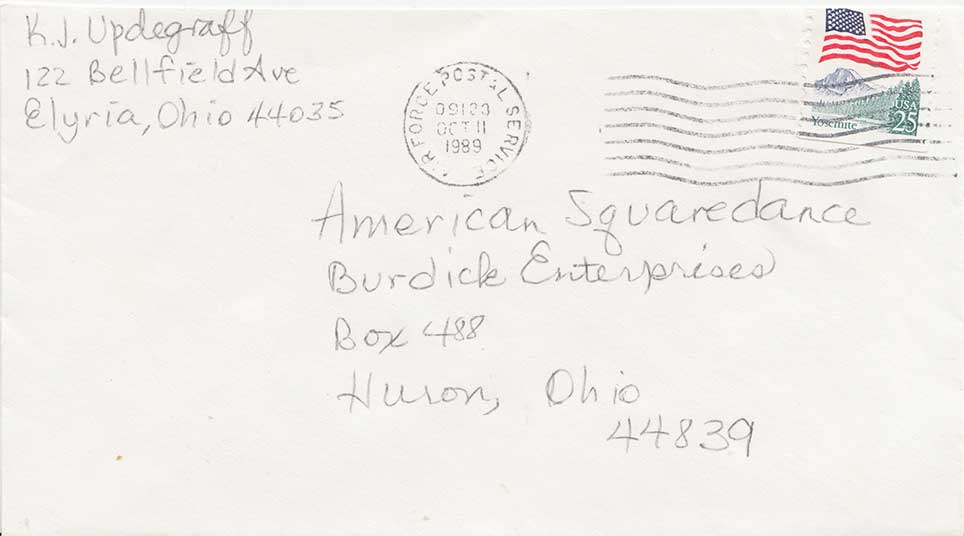 K.J. Updegraff
122 Bellfield Ave
Elyria, Ohio 44035
AIR FORCE POSTAL SERVICE
09123
OCT 11
1989
Yosemite
USA
25
American Squaredance
Burdick Enterprises
Box 488
Huron, Ohio
44839